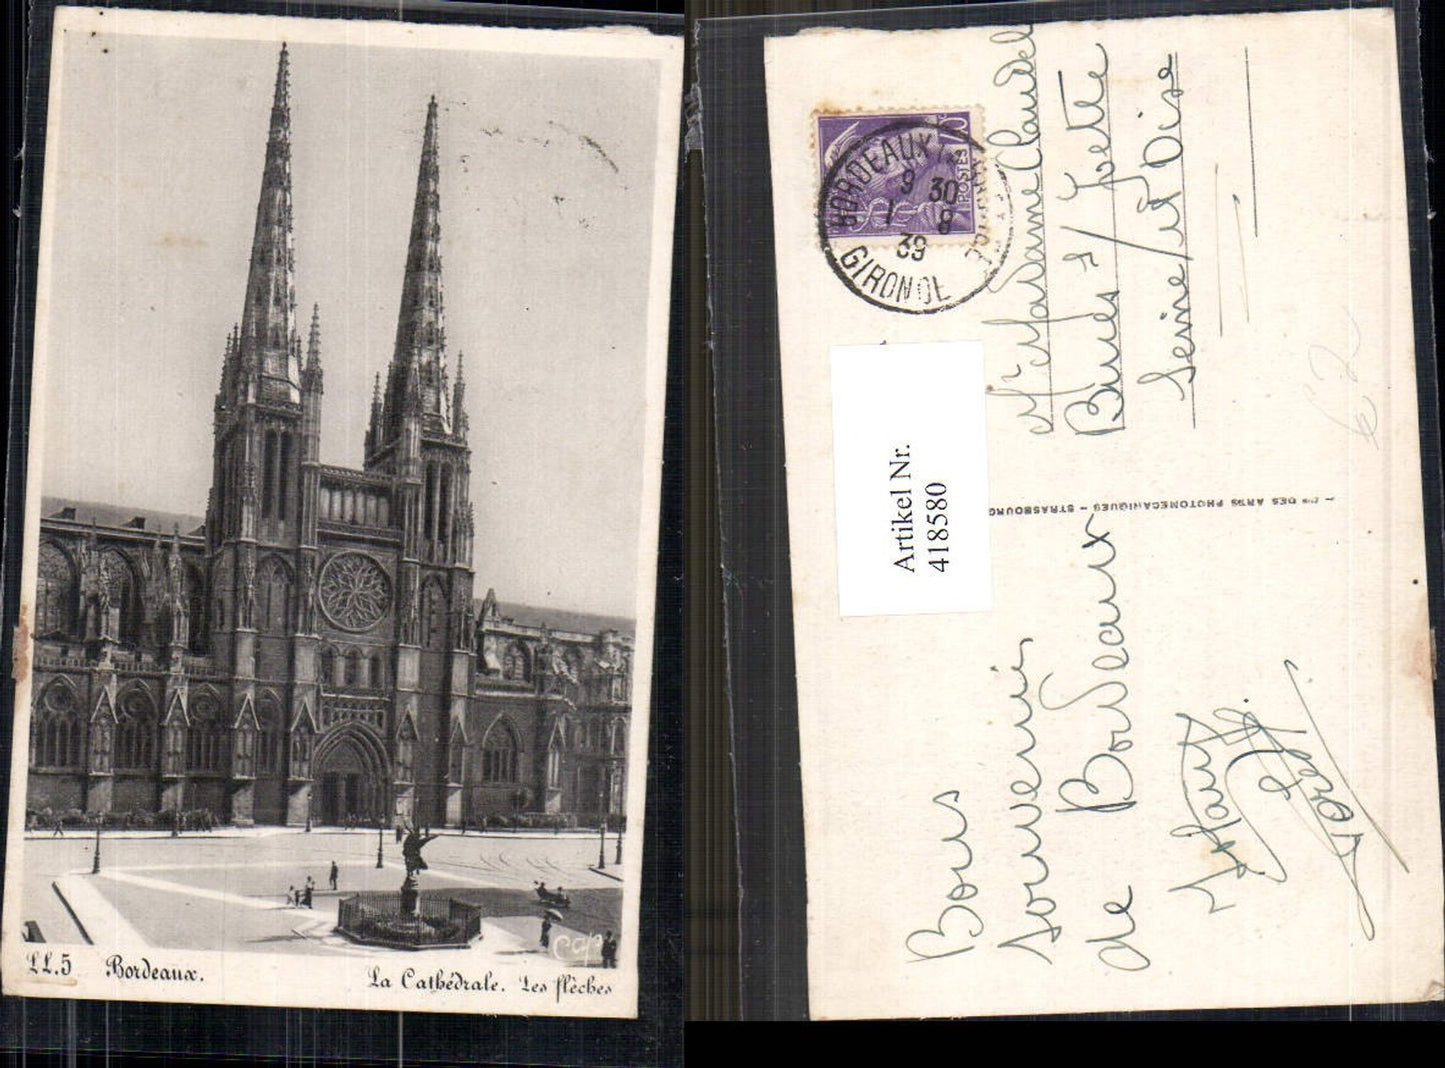 LL.5 Bordeaux.
La Cathédrale. Les flèches
Cap
POSTES
BORDEAUX
9 30
1 8
39
GIRONDE
Artikel Nr.
418580
Mr Madame Claudel
Bures s/ Yvette
Seine/et Oise
DES ARTS PHOTOMECANIQUES - STRASBOURG
62
Bons
souvenirs
de Bordeaux